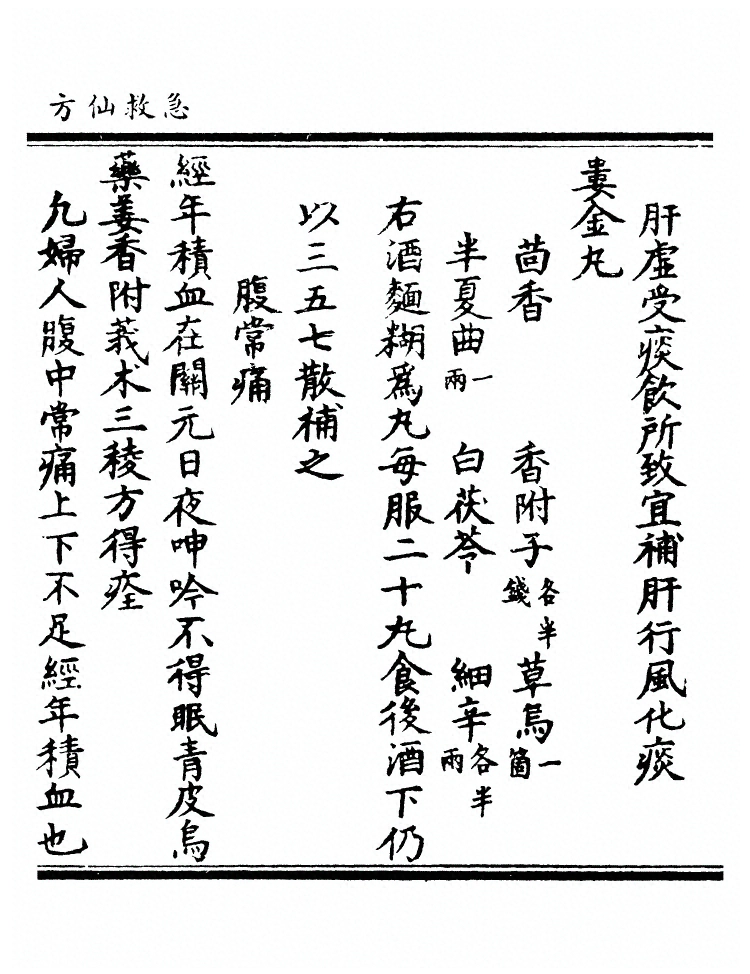 急救仙方
肝虛受痰飲所致宜補肝行風化痰
蔞金丸
茴香　香附子各半錢　草烏一箇
半夏曲一兩　白茯苓　細辛各半兩
右酒麵糊爲丸每服二十丸食後酒下仍
以三五七散補之
腹常痛
經年積血在關元日夜呻吟不得眠青皮烏
藥姜香附莪朮三稜方得痊
凢婦人腹中常痛上下不足經年積血也